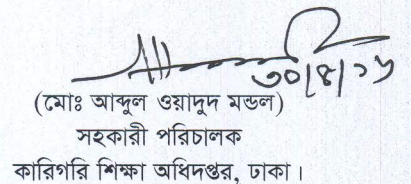 ৩০/৪/১৬
(মোঃ আব্দুল ওয়াদুদ মন্ডল)
সহকারী পরিচালক
কারিগরি শিক্ষা অধিদপ্তর, ঢাকা।